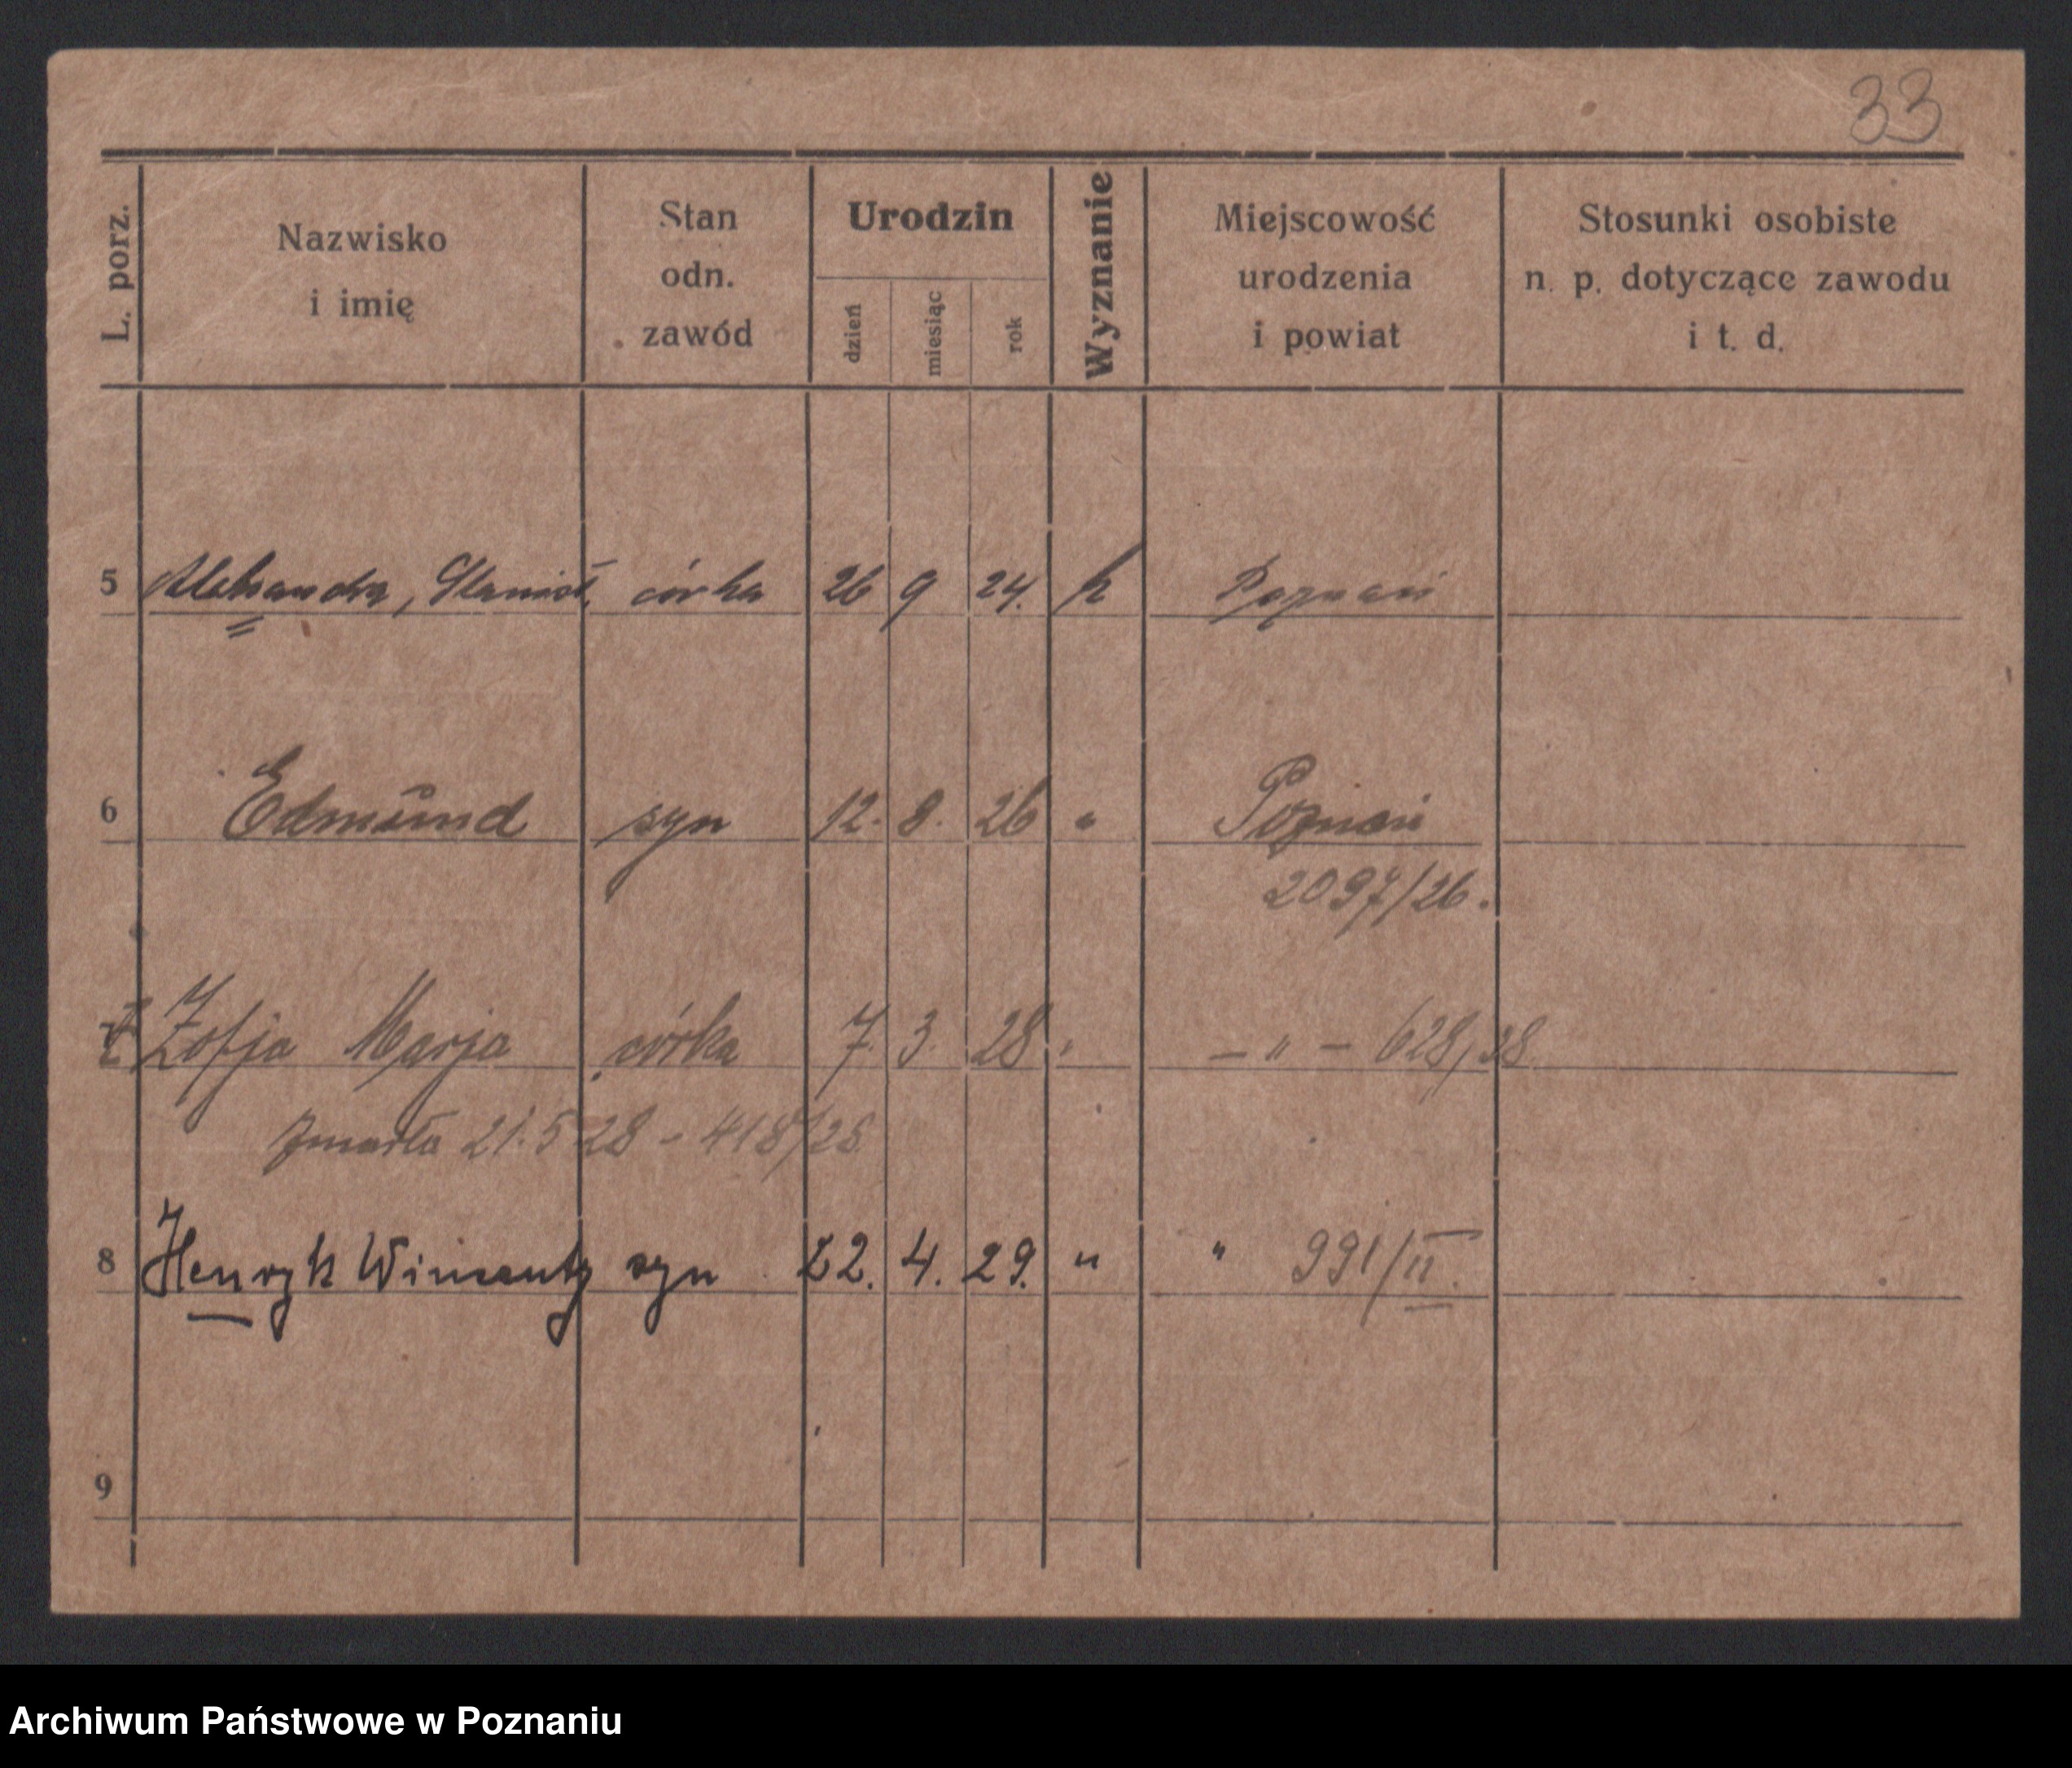 33
L. porz.
Nazwisko
i imię
Stan
odn.
zawód
Urodzin
dzień
miesiąc
rok
Wyznanie
Miejscowość
urodzenia
i powiat
Stosunki osobiste
n. p. dotyczące zawodu
i t. d.
5 Aleksandra, Stanisł. córka 26 9 24. k Poznań
6 Edmund syn 12. 8. 26 " Poznań
2097/26.
Zofja Marja córka 7. 3. 28 " — " — 628/28
zmarła 21.5 28 - 418/28
8 Henryk Wincenty syn 22. 4. 29. " " 991/II.
9
Archiwum Państwowe w Poznaniu